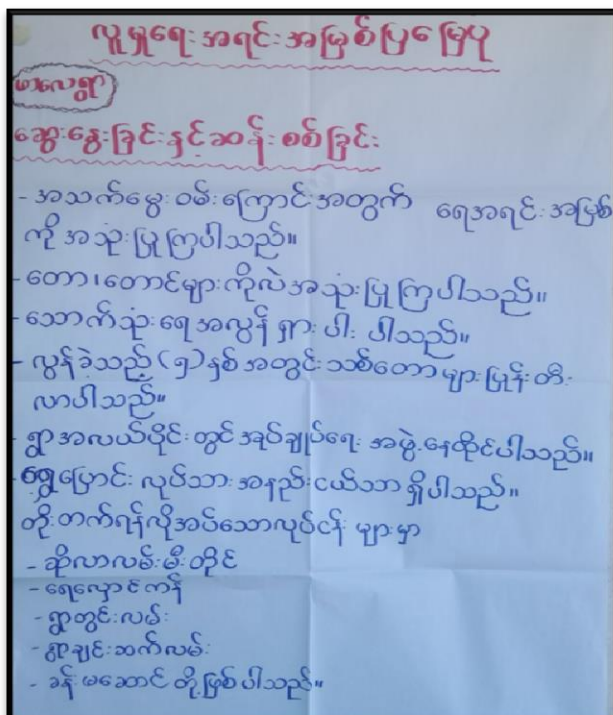 လူမှုရေးအရင်းအမြစ်ပြမြေပုံ
မာလေရွာ
ဆွေးနွေးခြင်းနှင့်ဆန်းစစ်ခြင်း
- အသက်မွေးဝမ်းကြောင်းအတွက် ရေအရင်းအမြစ်
ကိုအသုံးပြုကြပါသည်။
- တော၊တောင်များကိုလဲအသုံးပြုကြပါသည်။
- သောက်သုံးရေအလွန်ရှားပါးပါသည်။
- လွန်ခဲ့သည့်(၅)နှစ်အတွင်းသစ်တောများပြုန်းတီး
လာပါသည်။
- ရွာအလယ်ပိုင်းတွင်အုပ်ချုပ်ရေးအဖွဲ့နေထိုင်ပါသည်။
- ရွှေ့ပြောင်းလုပ်သားအနည်းငယ်သာရှိပါသည်။
တိုးတက်ရန်လိုအပ်သောလုပ်ငန်းများမှာ
- ဆိုလာလမ်းမီးတိုင်
- ရေလှောင်ကန်
- ရွာတွင်းလမ်း
- ရွာချင်းဆက်လမ်း
- ခန်းမဆောင်တို့ဖြစ်ပါသည်။